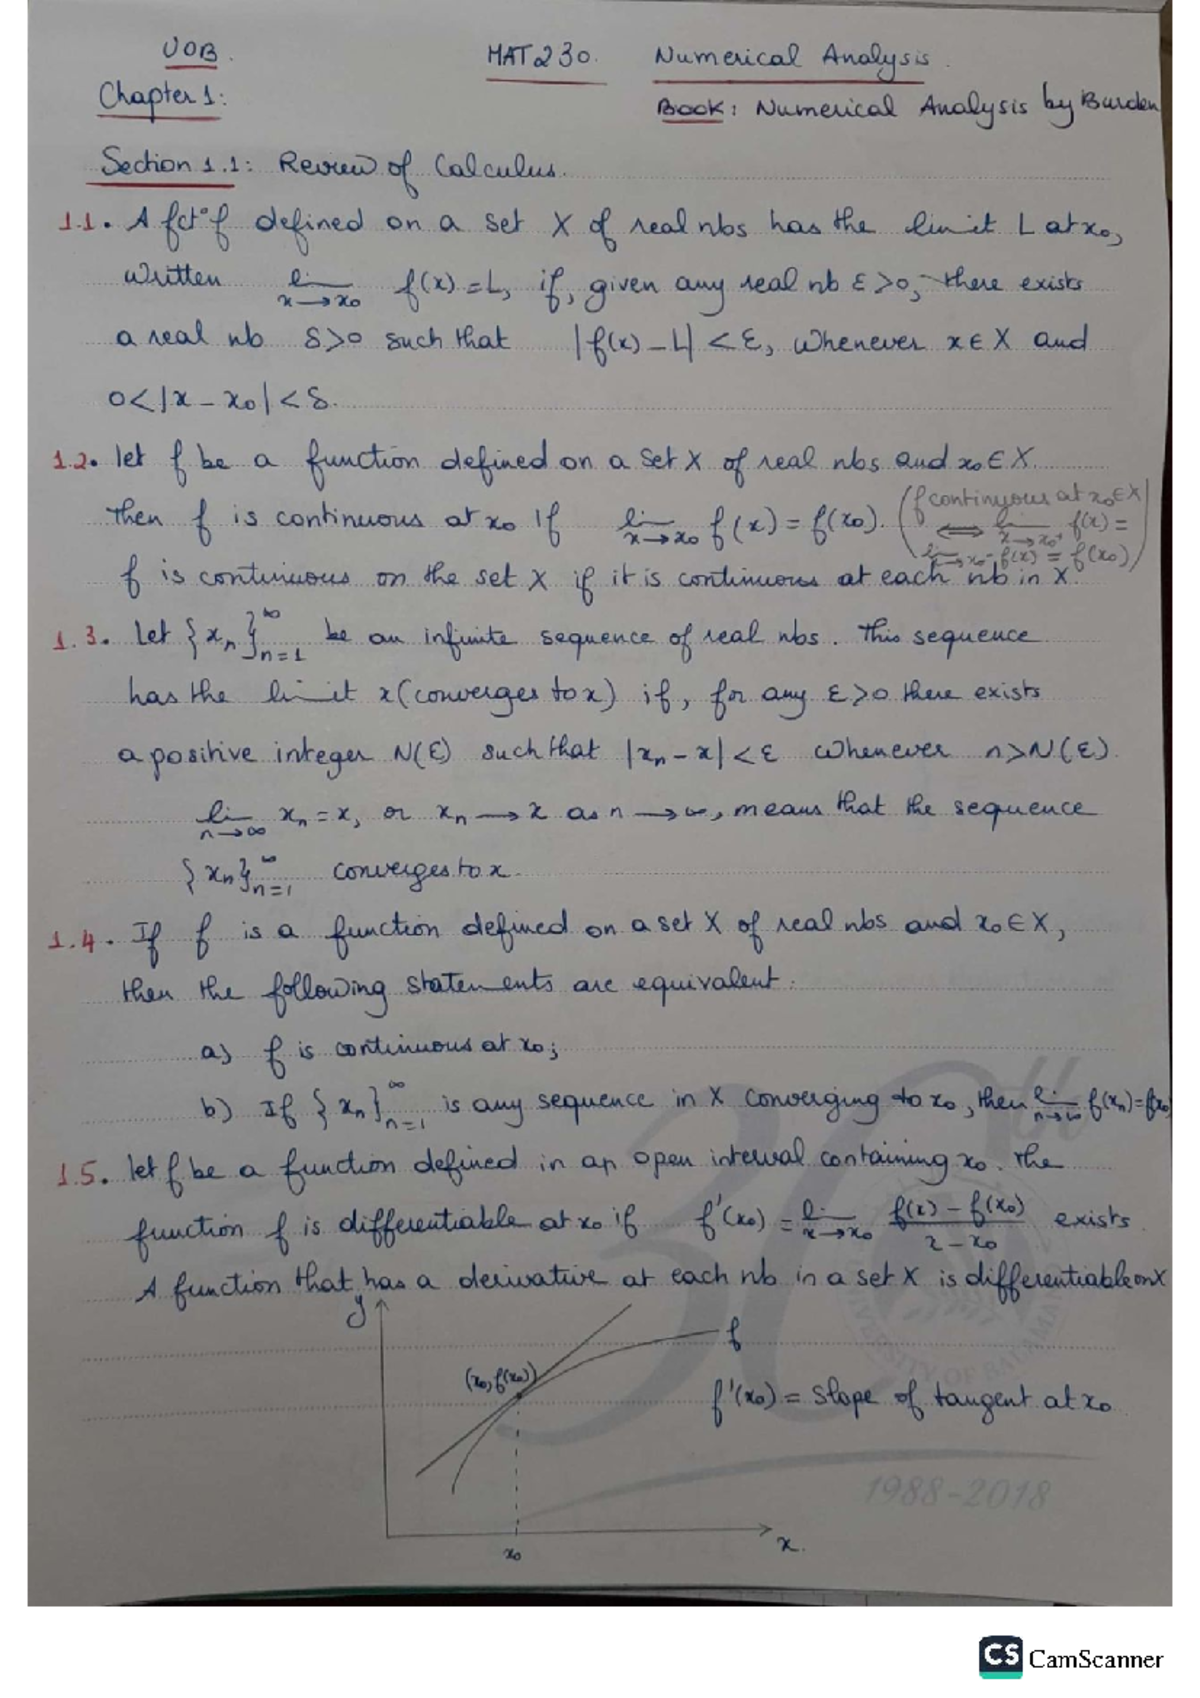 UOB. MAT230. Numerical Analysis.
Chapter 1: Book: Numerical Analysis by Burden
Section 1.1: Review of Calculus.
1.1. A fct° f defined on a set X of real nbs has the limit L at x₀,
written lim x→x₀ f(x) = L, if, given any real nb ε>0, there exists
a real nb δ>0 such that |f(x) - L| < ε, whenever x∈X and
0<|x - x₀|<δ.
1.2. let f be a function defined on a set X of real nbs and x₀∈X.
Then f is continuous at x₀ if lim x→x₀ f(x) = f(x₀). (f continuous at x₀∈X
⟺ lim x→x₀⁺ f(x) =
lim x→x₀⁻ f(x) = f(x₀))
f is continuous on the set X if it is continuous at each nb in X.
1.3. Let {xₙ}∞ n=1 be an infinite sequence of real nbs. This sequence
has the limit x (converges to x) if, for any ε>0 there exists
a positive integer N(ε) such that |xₙ - x| < ε whenever n>N(ε).
lim n→∞ xₙ = x, or xₙ → x as n → ∞, means that the sequence
{xₙ}∞ n=1 converges to x.
1.4. If f is a function defined on a set X of real nbs and x₀∈X,
then the following statements are equivalent.
a) f is continuous at x₀;
b) If {xₙ}∞ n=1 is any sequence in X converging to x₀, then lim n→∞ f(xₙ)=f(x₀)
1.5. let f be a function defined in an open interval containing x₀. The
function f is differentiable at x₀ if f'(x₀) = lim x→x₀ (f(x) - f(x₀))/(x - x₀) exists.
A function that has a derivative at each nb in a set X is differentiable on X
y
f
(x₀, f(x₀))
f'(x₀) = slope of tangent at x₀
x₀
x.
30th
UNIVERSITY OF BALAMAND
1988-2018
CS CamScanner